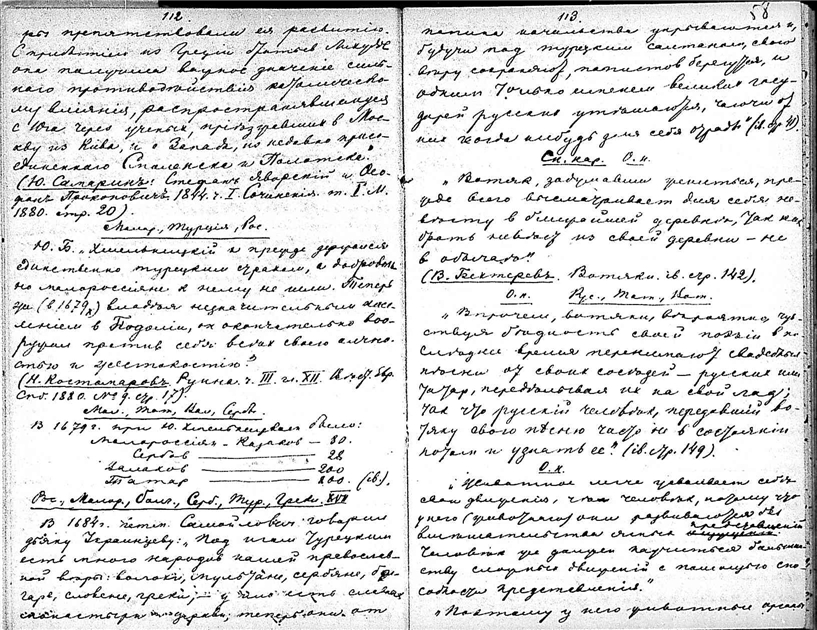 112.
ры препятствовали ея развитію.
С прибытіем из Греціи братьев Лихудов
она получила важное значеніе силь-
наго противодѣйствія католическо-
му вліянію, распространявшемуся
с Юга через ученых, пріѣзжавших в Мос-
кву из Кіева, и с Запада, из недавно присо-
единеннаго Смоленска и Полотска."
(Ю. Самаринъ: Стефан Яворскій и Ѳео-
фан Прокоповичъ. 1844. ч. I. Сочиненія. т. V. М.
1880. стр. 20).
Малор., Турція, Рос.
Ю. Б. „Хмельницкій и прежде держался
единственно турецким страхом, а доброволь-
но малороссіяне к нему не шли. Тепер
же (в 1679) владѣя незначительным насе-
леніем в Подоліи, он окончательно воо-
ружил против себя всѣх своею алчно-
стью и жестокостію."
(Н. Костомаровъ Руина. ч. III. гл. XII.
Спб. 1880. № 9. стр. 17).
Мал., Тат., Вал., Серб.
В 1679 г. при Ю. Хмельницком было:
Малороссіян-Казаков — 80.
Сербов — 28
Валахов — 200
Татар — (ib.)
Рос., Малор., болг., Серб., Тур., Греки. XVII
В 1684 г. гетм. Самойлович говорил
дьяку Украинцеву: „Под игом Турецким
есть много народов нашей православ-
ной вѣры: волохи, мультяне, сербяне, бол-
гаре, словене, греки;
монастыри и церкви; теперь они от
113.
58
папина начальства укрываются и,
будучи под турецким салтаном, свою
вѣру сохраняют, папистов берегутся, и
одним только именем великих госу-
дарей русских утѣшаются, чаячи от
них когда нибудь для себя отрады" (ib. стр. 41).
О. н.
„Вотяк, задумавши жениться, пре-
жде всего высматривает для себя не-
вѣсту в ближайшей деревнѣ, так как
брать невѣсту из своей деревни – не
в обычаѣ."
(В. Бехтеревъ. Вотяки. ib. стр. 142).
О. н. Рус., Тат., Вот.
„Впрочем, вотяки, вѣроятно, чув-
ствуя бѣдность своей поэзіи в по-
слѣднее время перенимают свадебныя
пѣсни от своих сосѣдей – русских или
татар, передѣлывая их на свой лад;
так что русскій человѣк, передавшій во-
тяку свою пѣсню часто не в состояніи
потом и узнать ее" (ib. стр. 149).
О. н.
„Животное легче усваивает себѣ
свои движенія, чѣм человѣк, потому что
у него (животнаго) они развиваются без
вмѣшательства ясных представленій
Человѣк же должен научиться большин-
ству сложных движений с помощью спо-
собности представленія."
„Поэтому у него животныя